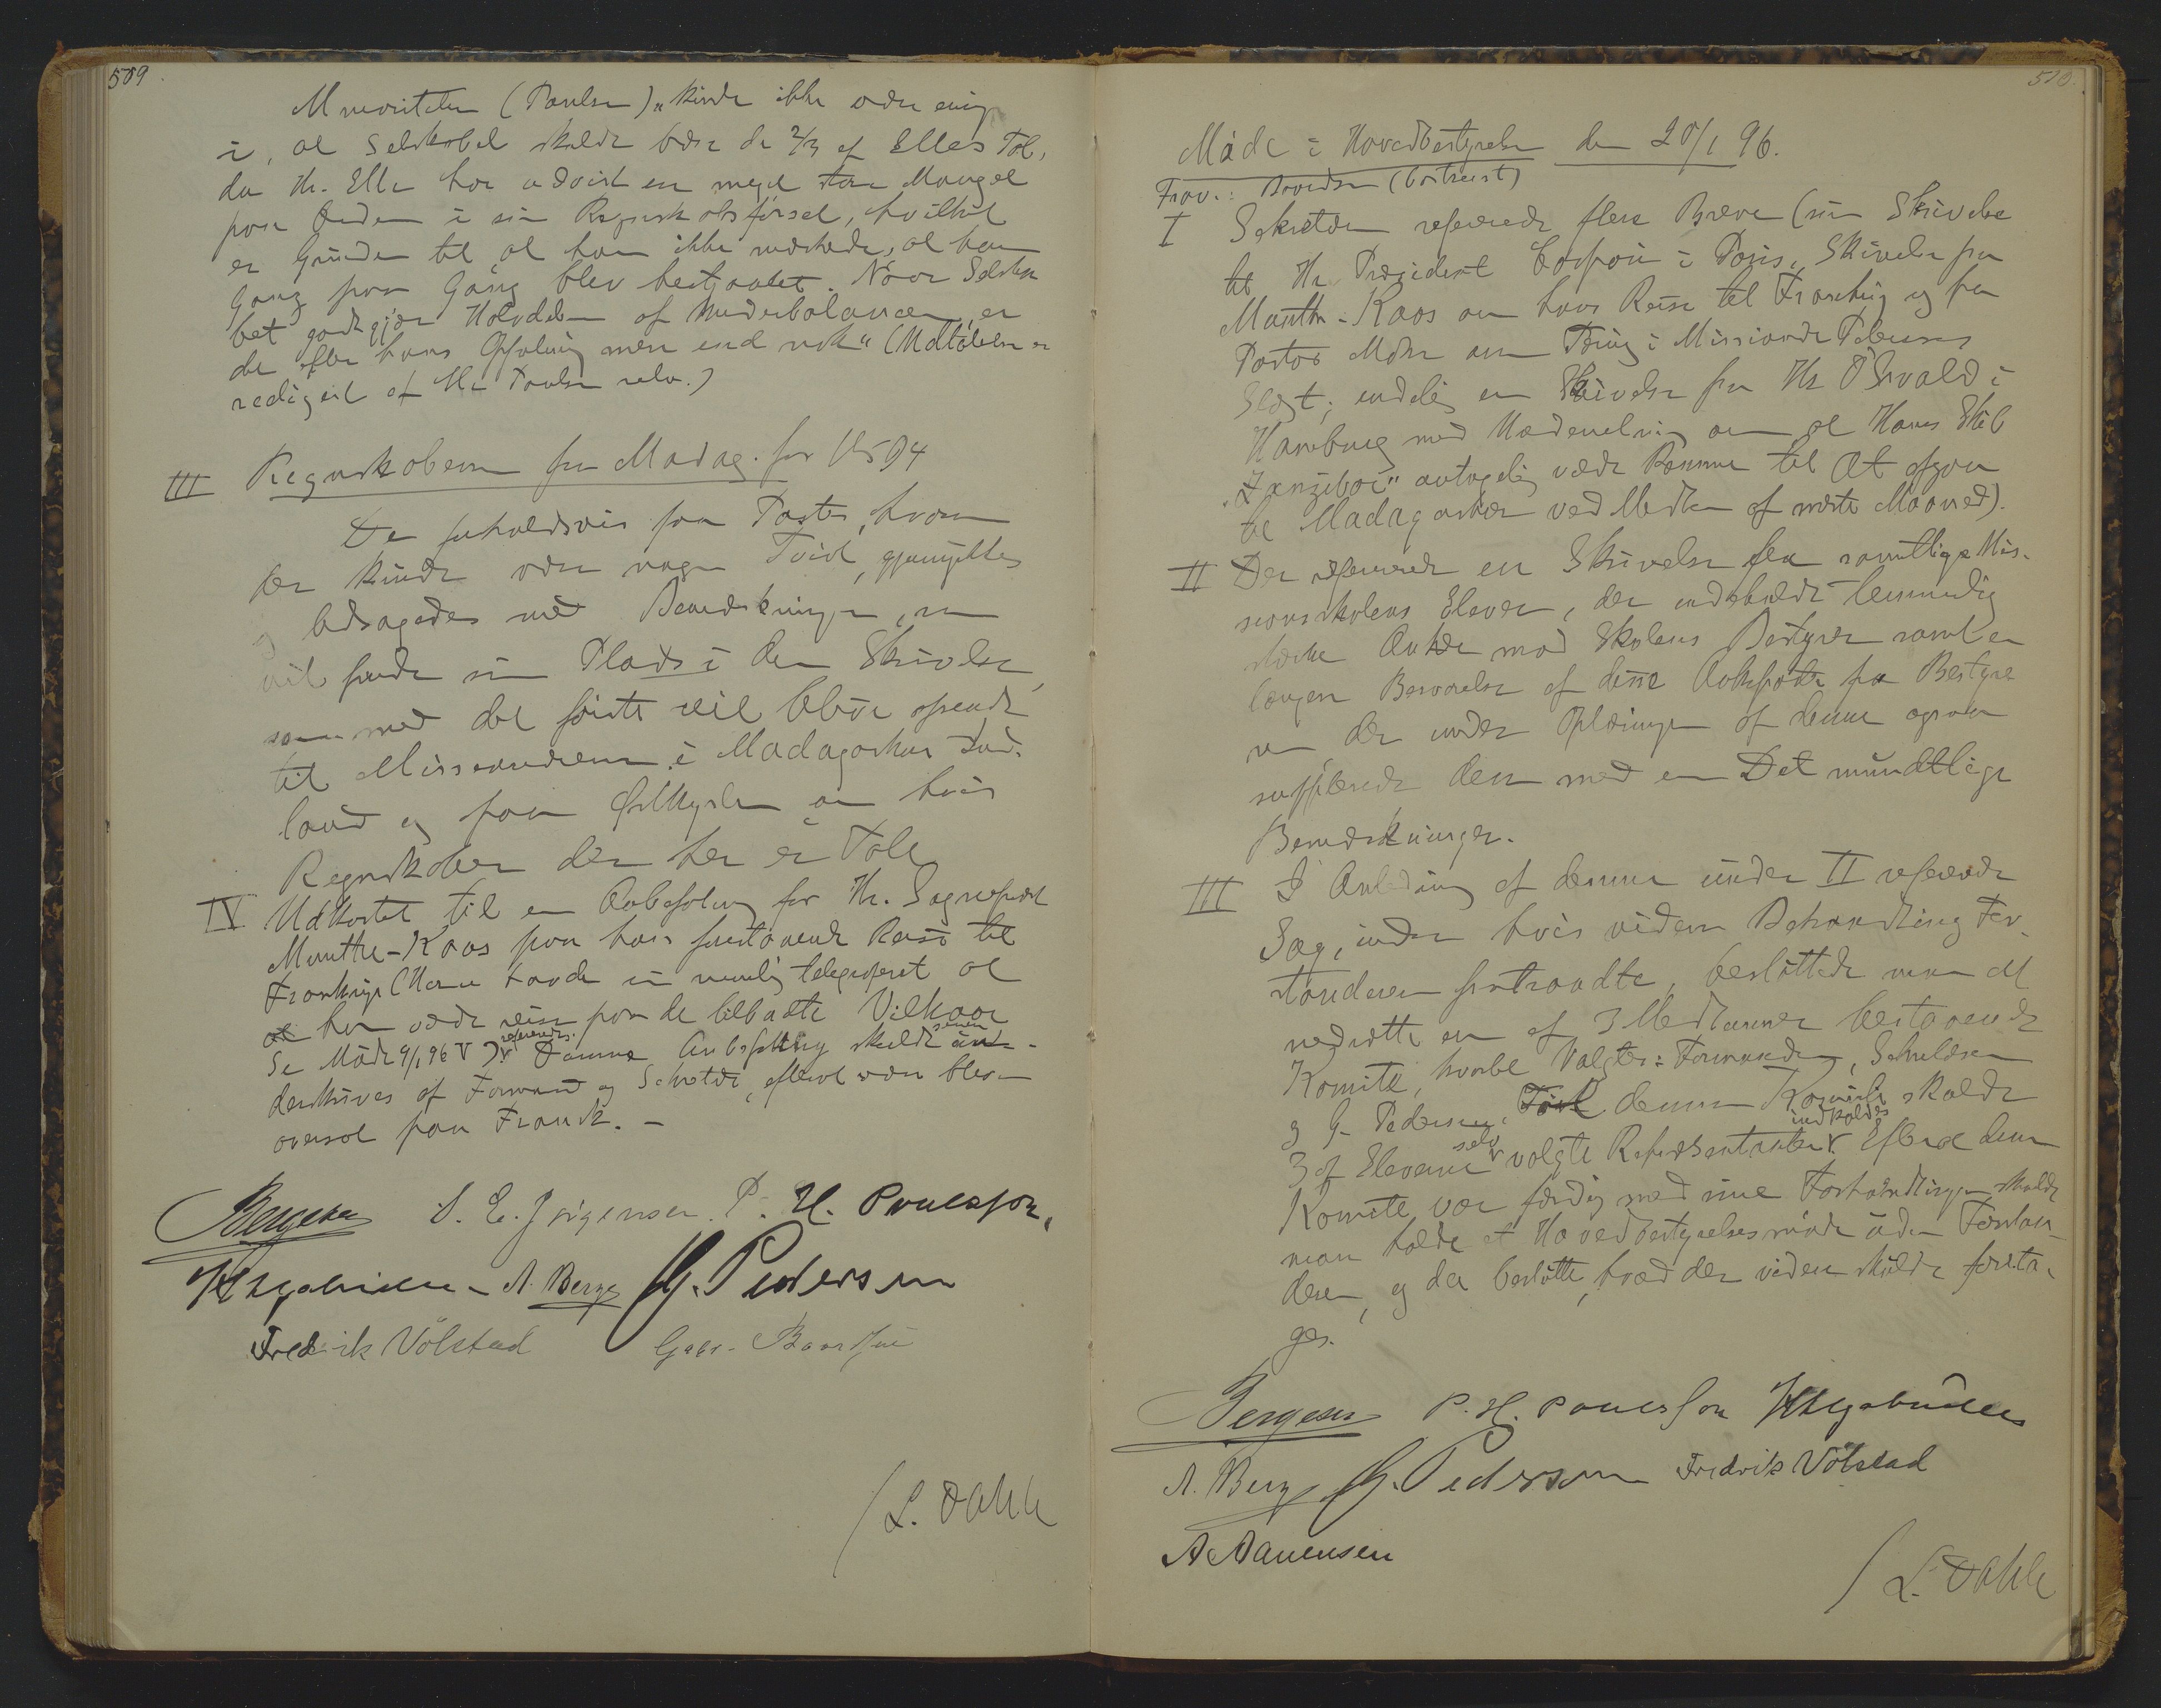 509
Minoriteten (Poulsen) "kunde ikke være enig
i, at Selskabet skulde bære de 2/3 af Elles Tab,
da Hr. Elle har udvist en meget stor Mangel
paa Orden i sin Regnskabsførsel, hvilket
er Grunden til at han ikke mærkede, at han
Gang paa Gang blev bestjaalet. Naar Selska-
bet godtgjør Halvdelen af Underbalancen, er
det efter hans Opfatning mere end nok" (Udtalelsen er
redigeret af Hr Poulsen selv.)
III Regnskaberne fra Madag. for 1894
De forholdsvis faa Poster, hvorom
der kunde være nogen Tvivl, gjennemgikkes
og ledsagedes med Bemærkninger, som
vil finde sin Plads i den Skrivelse,
som med det første vil blive afsendt
til Missionærerne i Madagaskar Ind-
land og paa Østkysten om hvis
Regnskaber der her er Tale
IV Udkastet til en Anbefaling for Hr. Sogneprest
Munthe-Kaas paa hans forestaaende Reise til
Frankrige (Han havde nemlig telegraferet at
at han vilde reise paa de tilbudte Vilkaar
Se Møde 9/1 96 V) refereredes. Denne Anbefaling skulde un-
derskrives af Formand og Sekretær, efterat være bleven
oversat paa Fransk. -
Bergesen S. E. Jörgensen. P. H. Poulsson,
A. Berge G. Pedersen
Fredrik Völstad Gabr.
/L. Dahle
510.
Møde i Hovedbestyrelsen den 20/1 96.
Frav.: (bortreist)
I Sekretæren refererede flere Breve (sin Skrivelse
til Hr. Præsident i Paris, Skrivelse fra
Munthe-Kaas om hans Reise til Frankrig og fra
Pastor om i Missionær Pedersens
Sted; endelig en Skrivelse fra Hr O'Swald i
Hamburg med Meddelelse om at Hans Skib
"Zanzibar" antagelig vilde komme til at afgaa
til Madagaskar ved Midten af næste Maaned).
II Der refereredes en Skrivelse fra samtlige Mis-
sionsskolens Elever, der indeholdt temmelig
stærke Anker mod Skolens Bestyrer samt en
længere Besvarelse af disse Ankeposter fra Bestyre
ren, der under Oplæsningen af denne ogsaa
supplerede den med en Del mundtlige
Bemærkninger.
III I Anledning af denne under II refererede
Sag, under hvis videre Behandling For-
standeren fratraadte, besluttede man at
nedsætte en af 3 Medlemmer bestaaende
Komite, hvortil valgtes: Formanden, Sekretæren
og G. Pedersen. For denne Komite skulde
3 af Eleverne selv valgte Repræsentanter indkaldes. Efterat denne
Komite var færdig med sine Forhandlinger skulde
man holde et Hovedbestyrelsesmøde uden Forstan-
deren, og der beslutte, hvad der videre skulde foreta-
ges.
Bergesen P. H. Poulsson
A. Berge G. Pedersen Fredrik Völstad
A Aanensen
/L. Dahle